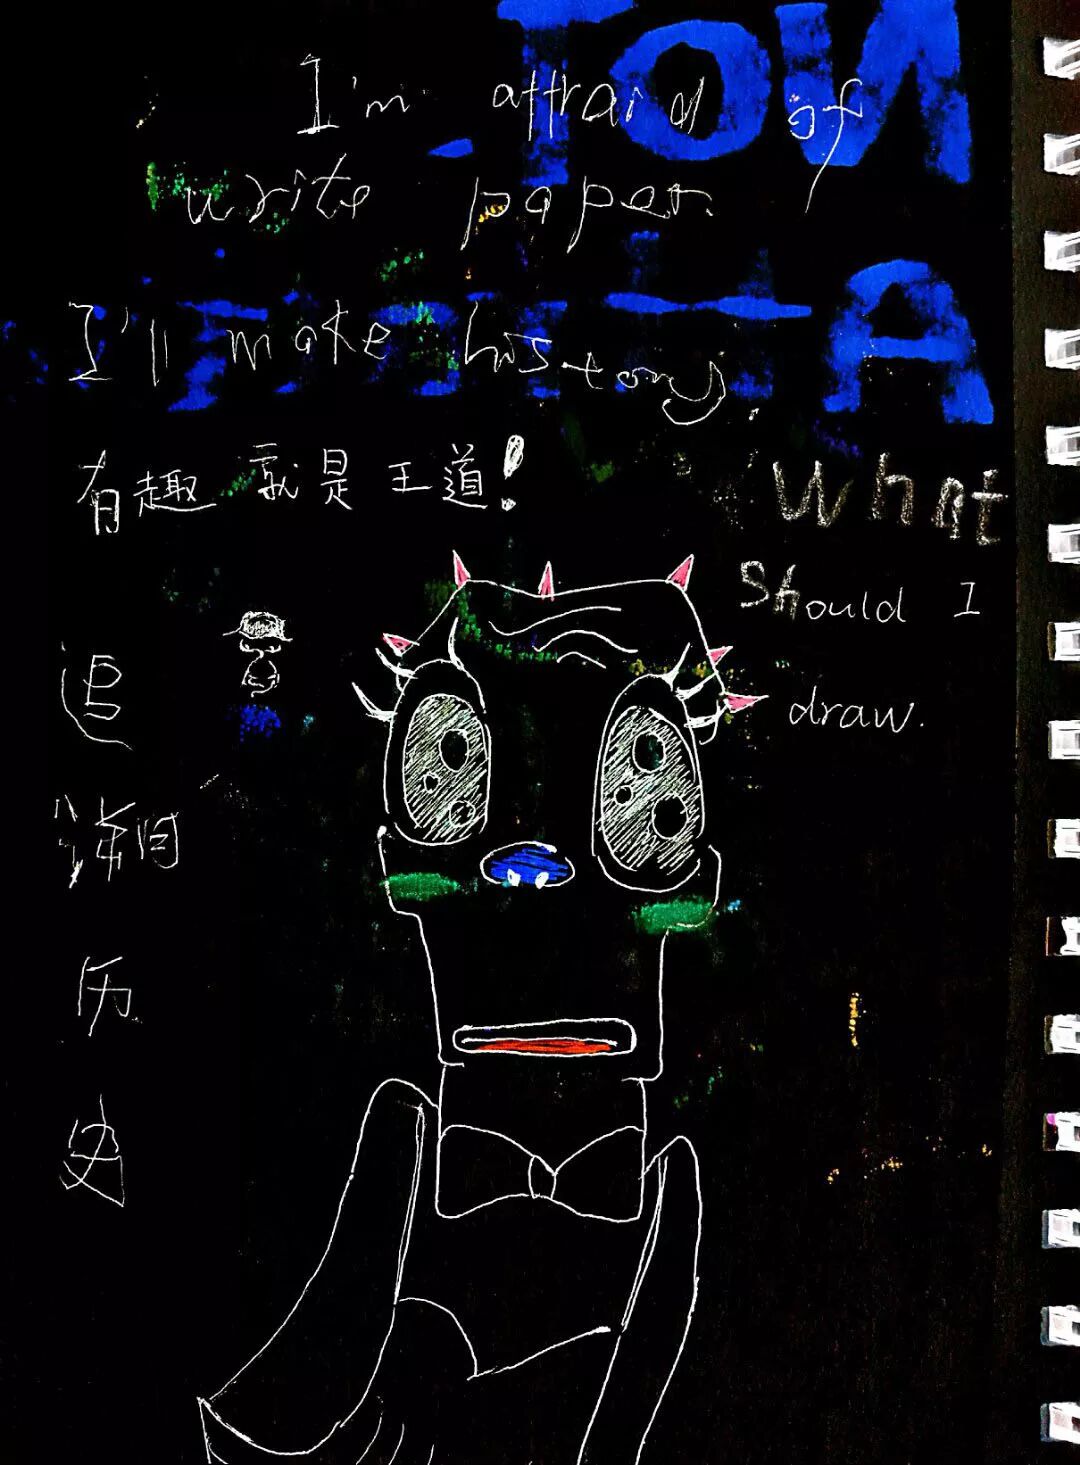 I'm affraid of
write paper.
I'll make history.
有趣就是王道!
What
Should I
draw.
追溯历史